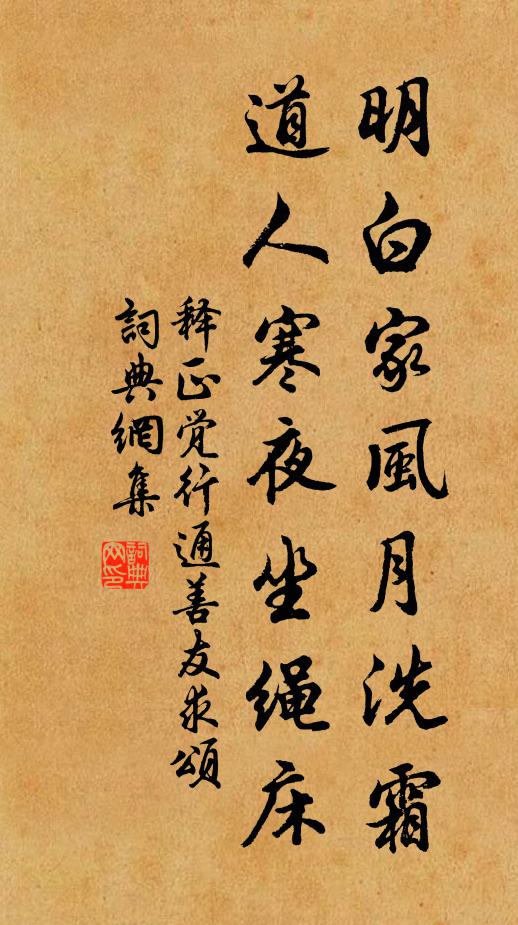 明白家風月洗霜
道人寒夜坐绳床
释正觉行通善友求頌
詞典網集
詞典网印